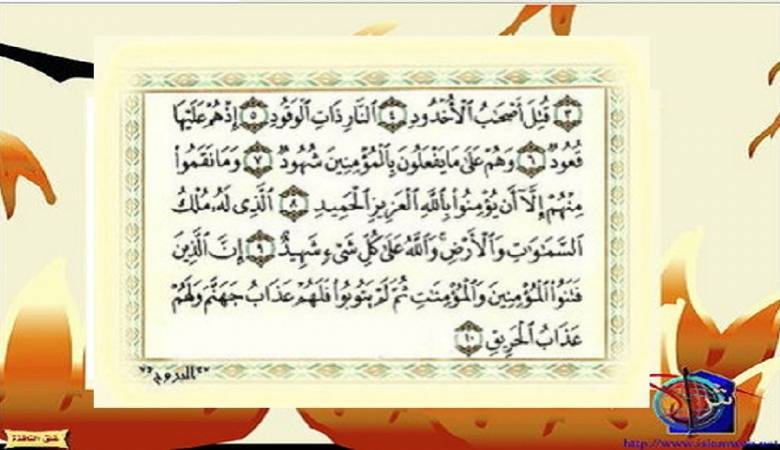 ﴿٣﴾ قُتِلَ أَصْحَٰبُ ٱلْأُخْدُودِ ﴿٤﴾ ٱلنَّارِ ذَاتِ ٱلْوَقُودِ ﴿٥﴾ إِذْ هُمْ عَلَيْهَا
قُعُودٌ ﴿٦﴾ وَهُمْ عَلَىٰ مَا يَفْعَلُونَ بِٱلْمُؤْمِنِينَ شُهُودٌ ﴿٧﴾ وَمَا نَقَمُوا۟
مِنْهُمْ إِلَّآ أَن يُؤْمِنُوا۟ بِٱللَّهِ ٱلْعَزِيزِ ٱلْحَمِيدِ ﴿٨﴾ ٱلَّذِى لَهُۥ مُلْكُ
ٱلسَّمَٰوَٰتِ وَٱلْأَرْضِ ۚ وَٱللَّهُ عَلَىٰ كُلِّ شَىْءٍ شَهِيدٌ ﴿٩﴾ إِنَّ ٱلَّذِينَ
فَتَنُوا۟ ٱلْمُؤْمِنِينَ وَٱلْمُؤْمِنَٰتِ ثُمَّ لَمْ يَتُوبُوا۟ فَلَهُمْ عَذَابُ جَهَنَّمَ وَلَهُمْ
عَذَابُ ٱلْحَرِيقِ ﴿١٠﴾
البروج
غلق النافذة
http://www.islamweb.net